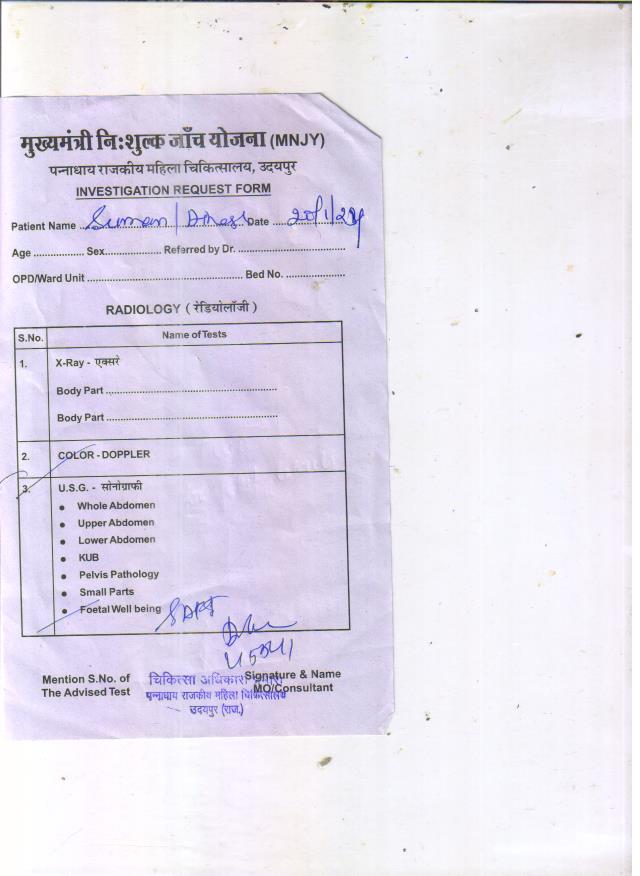 मुख्यमंत्री निःशुल्क जाँच योजना (MNJY)
पन्नाधाय राजकीय महिला चिकित्सालय, उदयपुर
INVESTIGATION REQUEST FORM
Patient Name Suman / Date
Age .................. Sex.................... Referred by Dr. ......................................
OPD/Ward Unit ....................................................... Bed No. .....................
RADIOLOGY ( रेडियोलॉजी )
S.No. Name of Tests
1. X-Ray - एक्सरे
Body Part ............................................................
Body Part ............................................................
2. COLOR - DOPPLER
3. U.S.G. - सोनोग्राफी
• Whole Abdomen
• Upper Abdomen
• Lower Abdomen
• KUB
• Pelvis Pathology
• Small Parts
• Foetal Well being
Mention S.No. of
The Advised Test
चिकित्सा अधिकारी
पन्नाधाय राजकीय महिला चिकित्सालय
उदयपुर (राज.)
Signature & Name
MO/Consultant